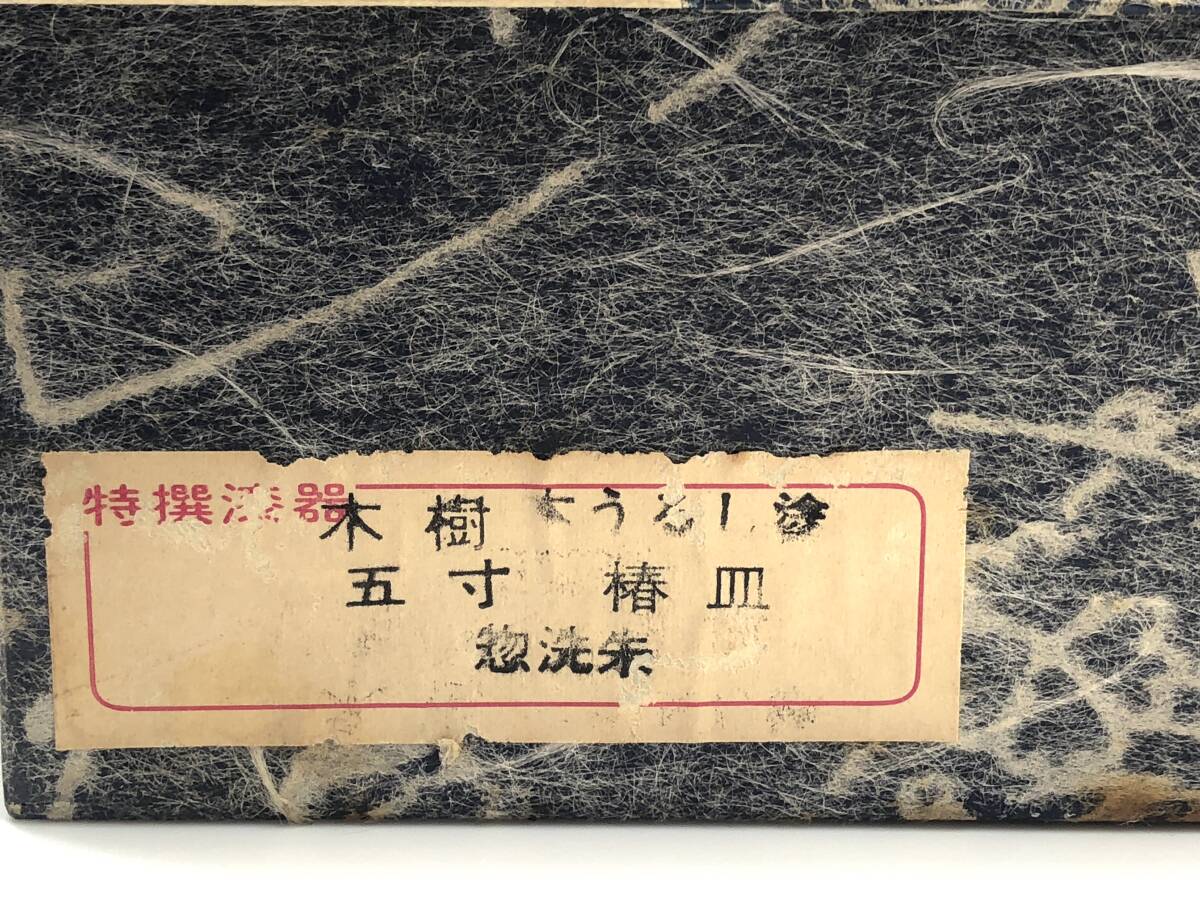 特撰漆器
木樹 本うるし塗
五寸 椿皿
惣洗朱